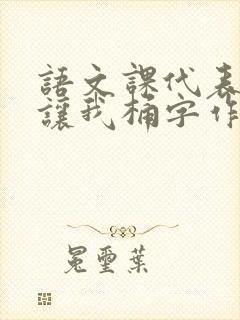 語文課代表
讓我桶字作
冕璽葉